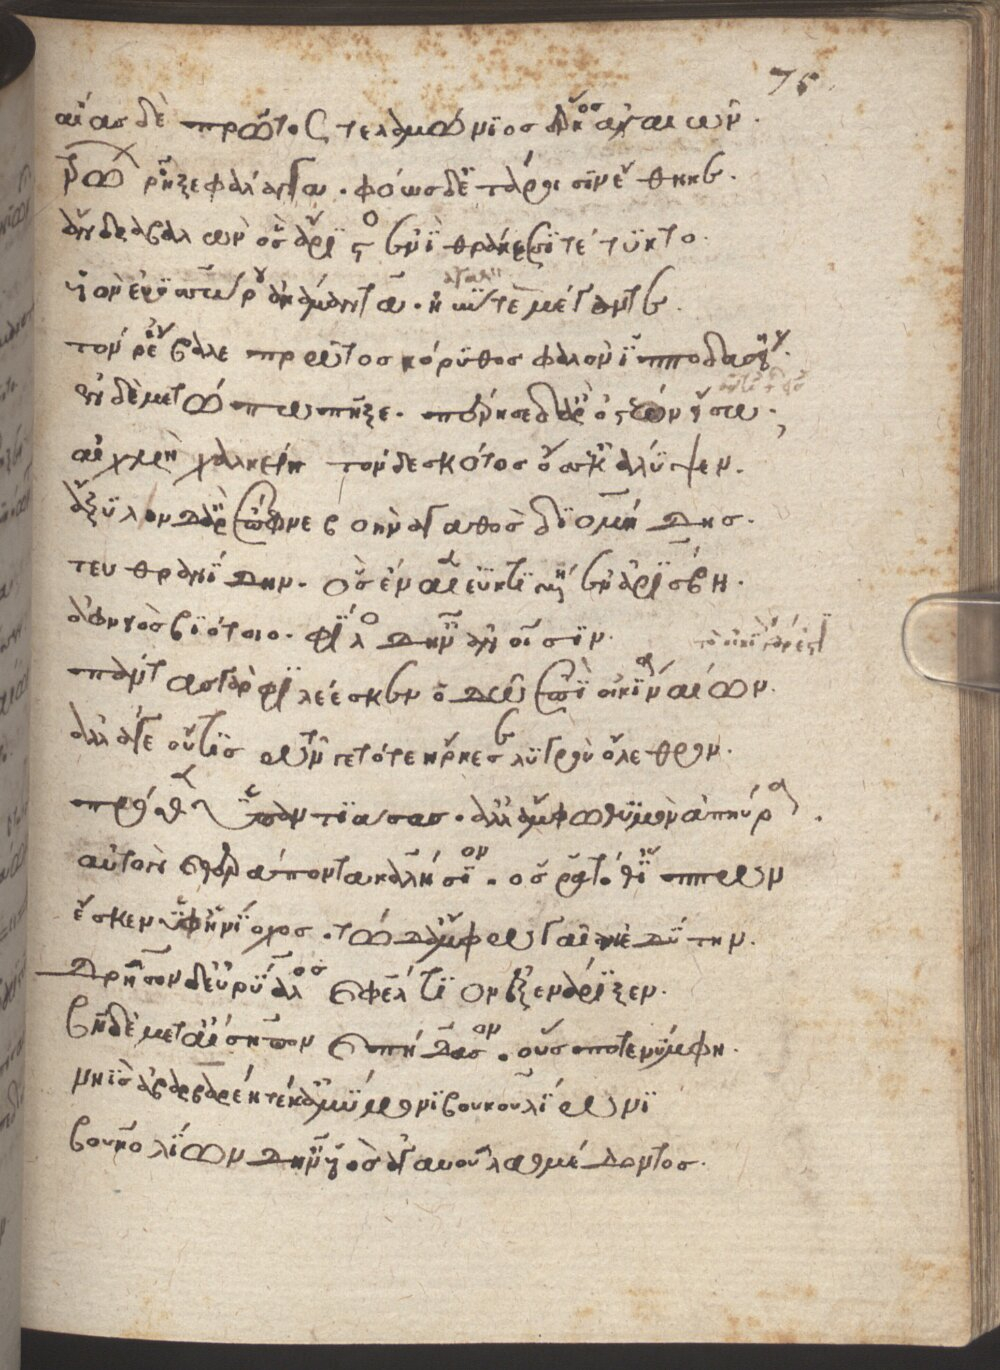 75
αἴας δὲ πρῶτος τελαμώνιος ἕρκος ἀχαιῶν.
τρώων ῥῆξε φάλαγγα. φόως δ' ἑτάροισιν ἔθηκεν.
ἄνδρα βαλὼν ὃς ἄριστος ἐνὶ θρήκεσσι τέτυκτο.
υἱὸν ἐϋσσώρου ἀκάμαντα. ἠΰν τε μέγαν τε.
τόν ῥ' ἔβαλε πρῶτος κόρυθος φάλον ἱπποδασείης.
ἐν δὲ μετώπω πῆξε. πέρησε δ' ἄρ' ὀστέον εἴσω.
αἰχμὴ χαλκείη τὸν δὲ σκότος ὄσσε κάλυψεν.
ἄξυλον δ' ἄρ' ἔπεφνε βοὴν ἀγαθὸς διομήδης.
τευθρανίδην. ὃς ἔναιεν ἐϋκτιμένη ἐν ἀρίσβη.
ἀφνειὸς βιότοιο. φίλος δ' ἦν ἀνθρώποισιν.
πάντας γὰρ φιλέεσκεν ὁδῷ ἔπι οἰκία ναίων.
ἀλλά οἱ οὔτις τῶν γε τότε ἤρκεσεν λυγρὸν ὄλεθρον.
πρόσθεν ὑπαντιάσας. ἀλλ' ἄμφω θυμὸν ἀπηύρα.
αὐτὸν καὶ θεράποντα καλήσιον. ὅς ῥα τόθ' ἵππων
ἔσκεν ὑφηνίοχος. τὼ δ' ἄμφω γαῖαν ἐδύτην.
δρῆσον δ' εὐρύαλος καὶ ὀφέλτιον ἐξενάριξεν.
βῆ δὲ μετ' αἴσηπον καὶ πήδασον. οὕς ποτε νύμφη.
νηῒς ἀβαρβαρέη τέκ' ἀμύμονι βουκουλίωνι
βουκολίων δ' ἦν υἱὸς ἀγαυοῦ λαομέδοντος.